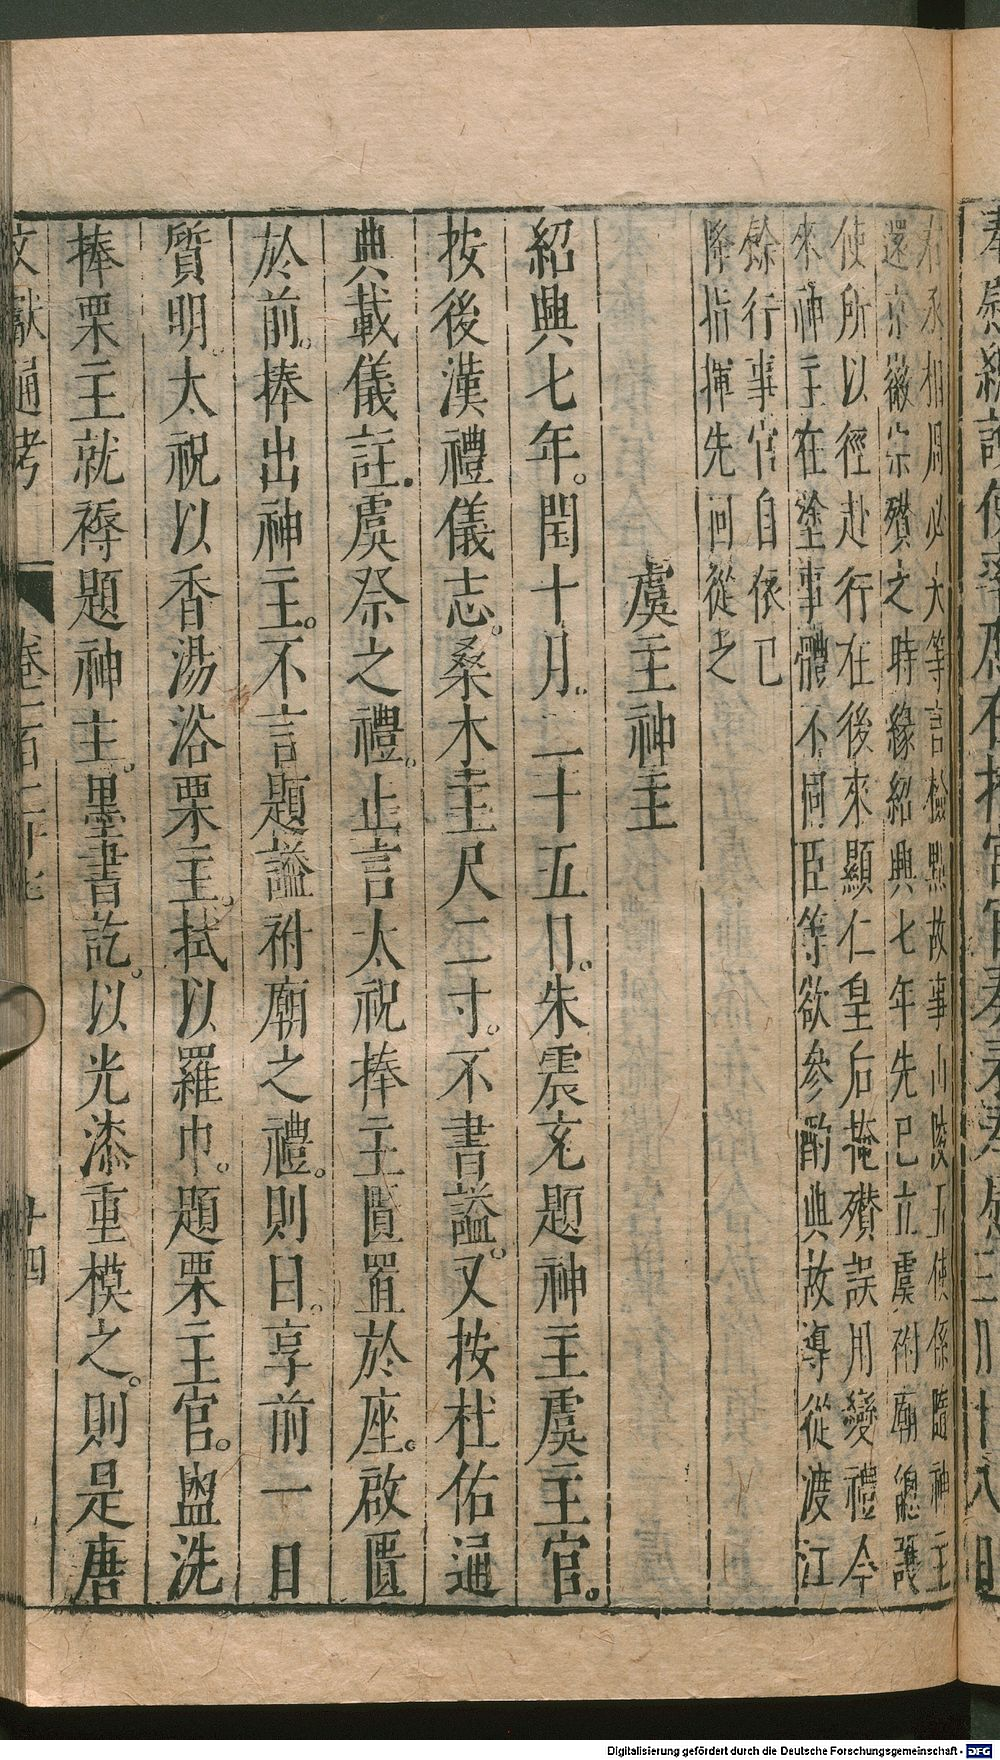 右丞相周必大等言檢點故事山陵五使係隨神主
還京徽宗欑之時緣紹興七年先已立虞祔廟總護
使所以徑赴行在後來顯仁皇后掩欑誤用變禮今
來神主在塗事體不同臣等欲參酌典故導從渡江
餘行事官自依已
降指揮先回從之
虞主神主
紹興七年。閏十月。二十五日。朱震充題神主虞主官。
按後漢禮儀志。桑木主尺二寸。不書諡。又按杜佑通
典載儀註。虞祭之禮。止言太祝捧主匱置於座。啟匱
於前。捧出神主。不言題諡祔廟之禮。則曰。享前一日
質明。太祝以香湯浴栗主。拭以羅巾。題栗主官。盥洗
捧栗主就褥題神主。墨書訖。以光漆重模之。則是唐
文獻通考
卷一百二十七
十四
Digitalisierung gefördert durch die Deutsche Forschungsgemeinschaft - DFG